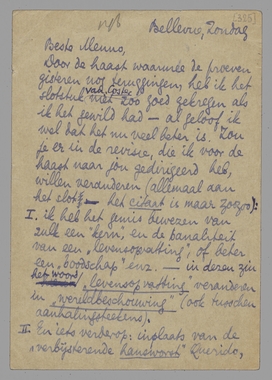 [335]
Bellevue, Zondag
Beste Menno,
Door de haast waarmee de proeven
gisteren nog teruggingen, heb ik het
slotstuk van Coster niet zoo goed gekregen als
ik het gewild had — al geloof ik
wel dat het nu veel beter is. Zou
je er in de revisie, die ik voor de
haast naar jou gedirigeerd heb,
willen veranderen (allemaal aan
het slot; het citaat is maar zoozoo):
I. ik heb het genie bewezen van
zulk een "kern", en de banaliteit
van een "levensopvatting", of beter
een "boodschap" enz. — in deren zin
"levensopvatting" veranderen
in "wereldbeschouwing" (ook tusschen
aanhalingsteekens).
II. En iets verderop: inplaats van de
"verbijsterende hansworst" Querido,